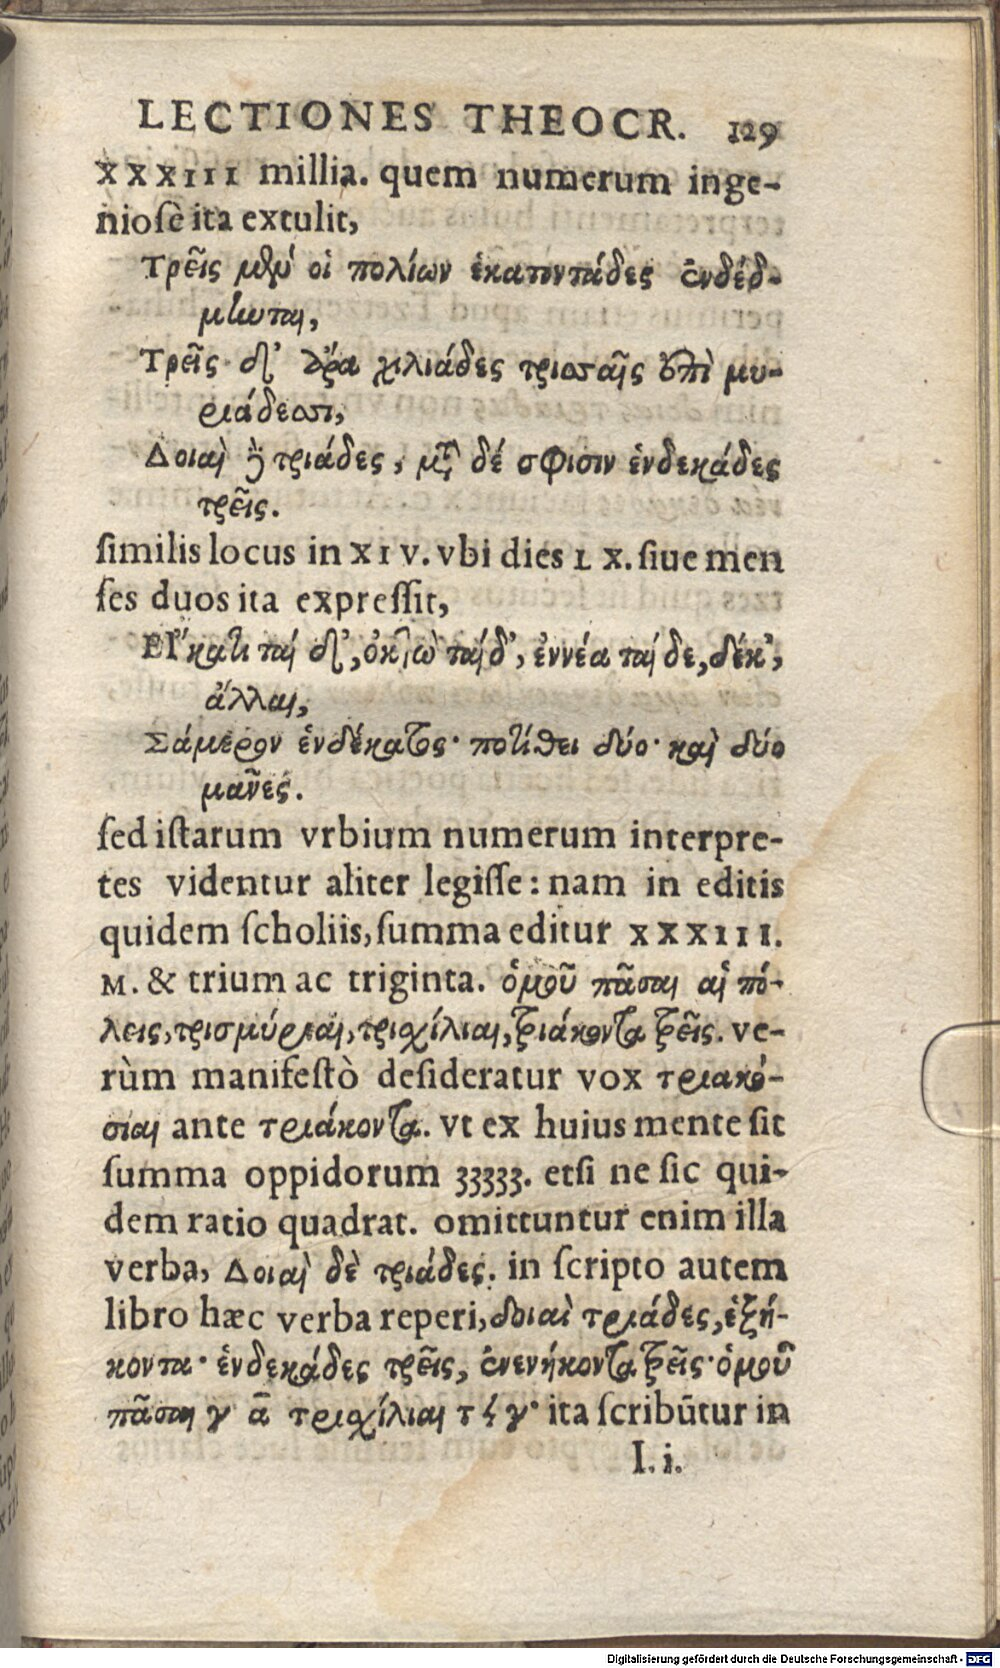 LECTIONES THEOCR. 129
XXXIII millia. quem numerum inge-
niosè ita extulit,
Τρεῖς μὲν οἱ πολίων ἑκατοντάδες ἐνδέδ-
μηνται,
Τρεῖς δ' ἄρα χιλιάδες τρισσαῖς ἐπὶ μυ-
ριάδεσσι,
Δοιαὶ ἢ τριάδες, μετὰ δέ σφισιν ἑνδεκάδες
τρεῖς.
similis locus in XIV. vbi dies LX. siue men
ses duos ita expressit,
Εἴκατι ταί δ', ὀκτὼ ταίδ', ἐννέα ταίδε, δέκ',
ἄλλαι,
Σάμερον ἑνδέκατος· ποτίθει δύο· καὶ δύο
μᾶνες.
sed istarum vrbium numerum interpre-
tes videntur aliter legisse: nam in editis
quidem scholiis, summa editur XXXIII.
M. & trium ac triginta. ὁμοῦ πᾶσαι αἱ πό-
λεις, τρισμύριαι, τρισχίλιαι, τριάκοντα τρεῖς. ve-
rùm manifestò desideratur vox τριακό-
σιαι ante τριάκοντα. vt ex huius mente sit
summa oppidorum 33333. etsi ne sic qui-
dem ratio quadrat. omittuntur enim illa
verba, Δοιαὶ δὲ τριάδες. in scripto autem
libro hæc verba reperi, δοιαὶ τριάδες, ἑξή-
κοντα· ἑνδεκάδες τρεῖς, ἐνενήκοντα τρεῖς· ὁμοῦ
πᾶσαι γ α τρισχίλιαι τ ϟ γ· ita scribūtur in
I. i.
Digitalisierung gefördert durch die Deutsche Forschungsgemeinschaft - DFG